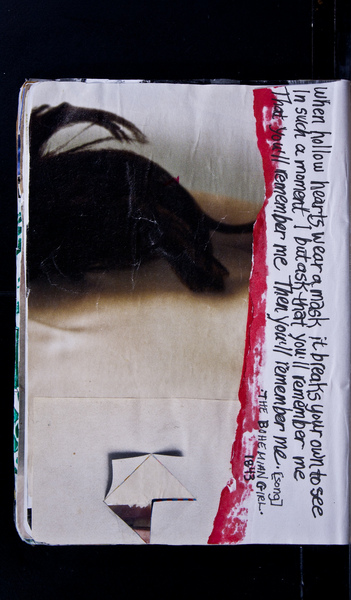 When hollow hearts wear a mask it breaks your own to see
In such a moment I but ask that you'll remember me
That you'll remember me Then you'll remember me. [song]
·THE BOHEMIAN GIRL·
1843